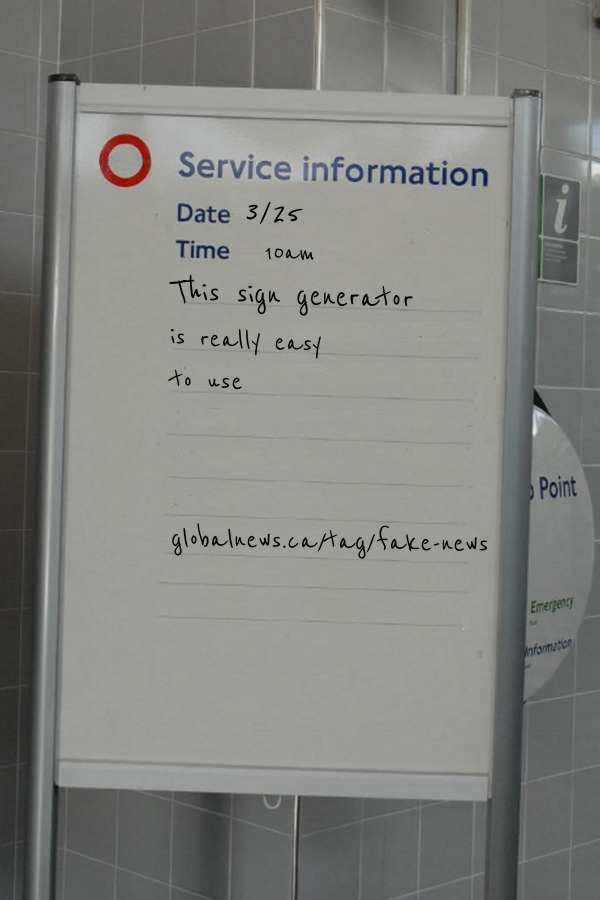 Service information
Date 3/25
Time 10am
This sign generator
is really easy
to use
globalnews.ca/tag/fake-news
i
Point
Emergency
Information